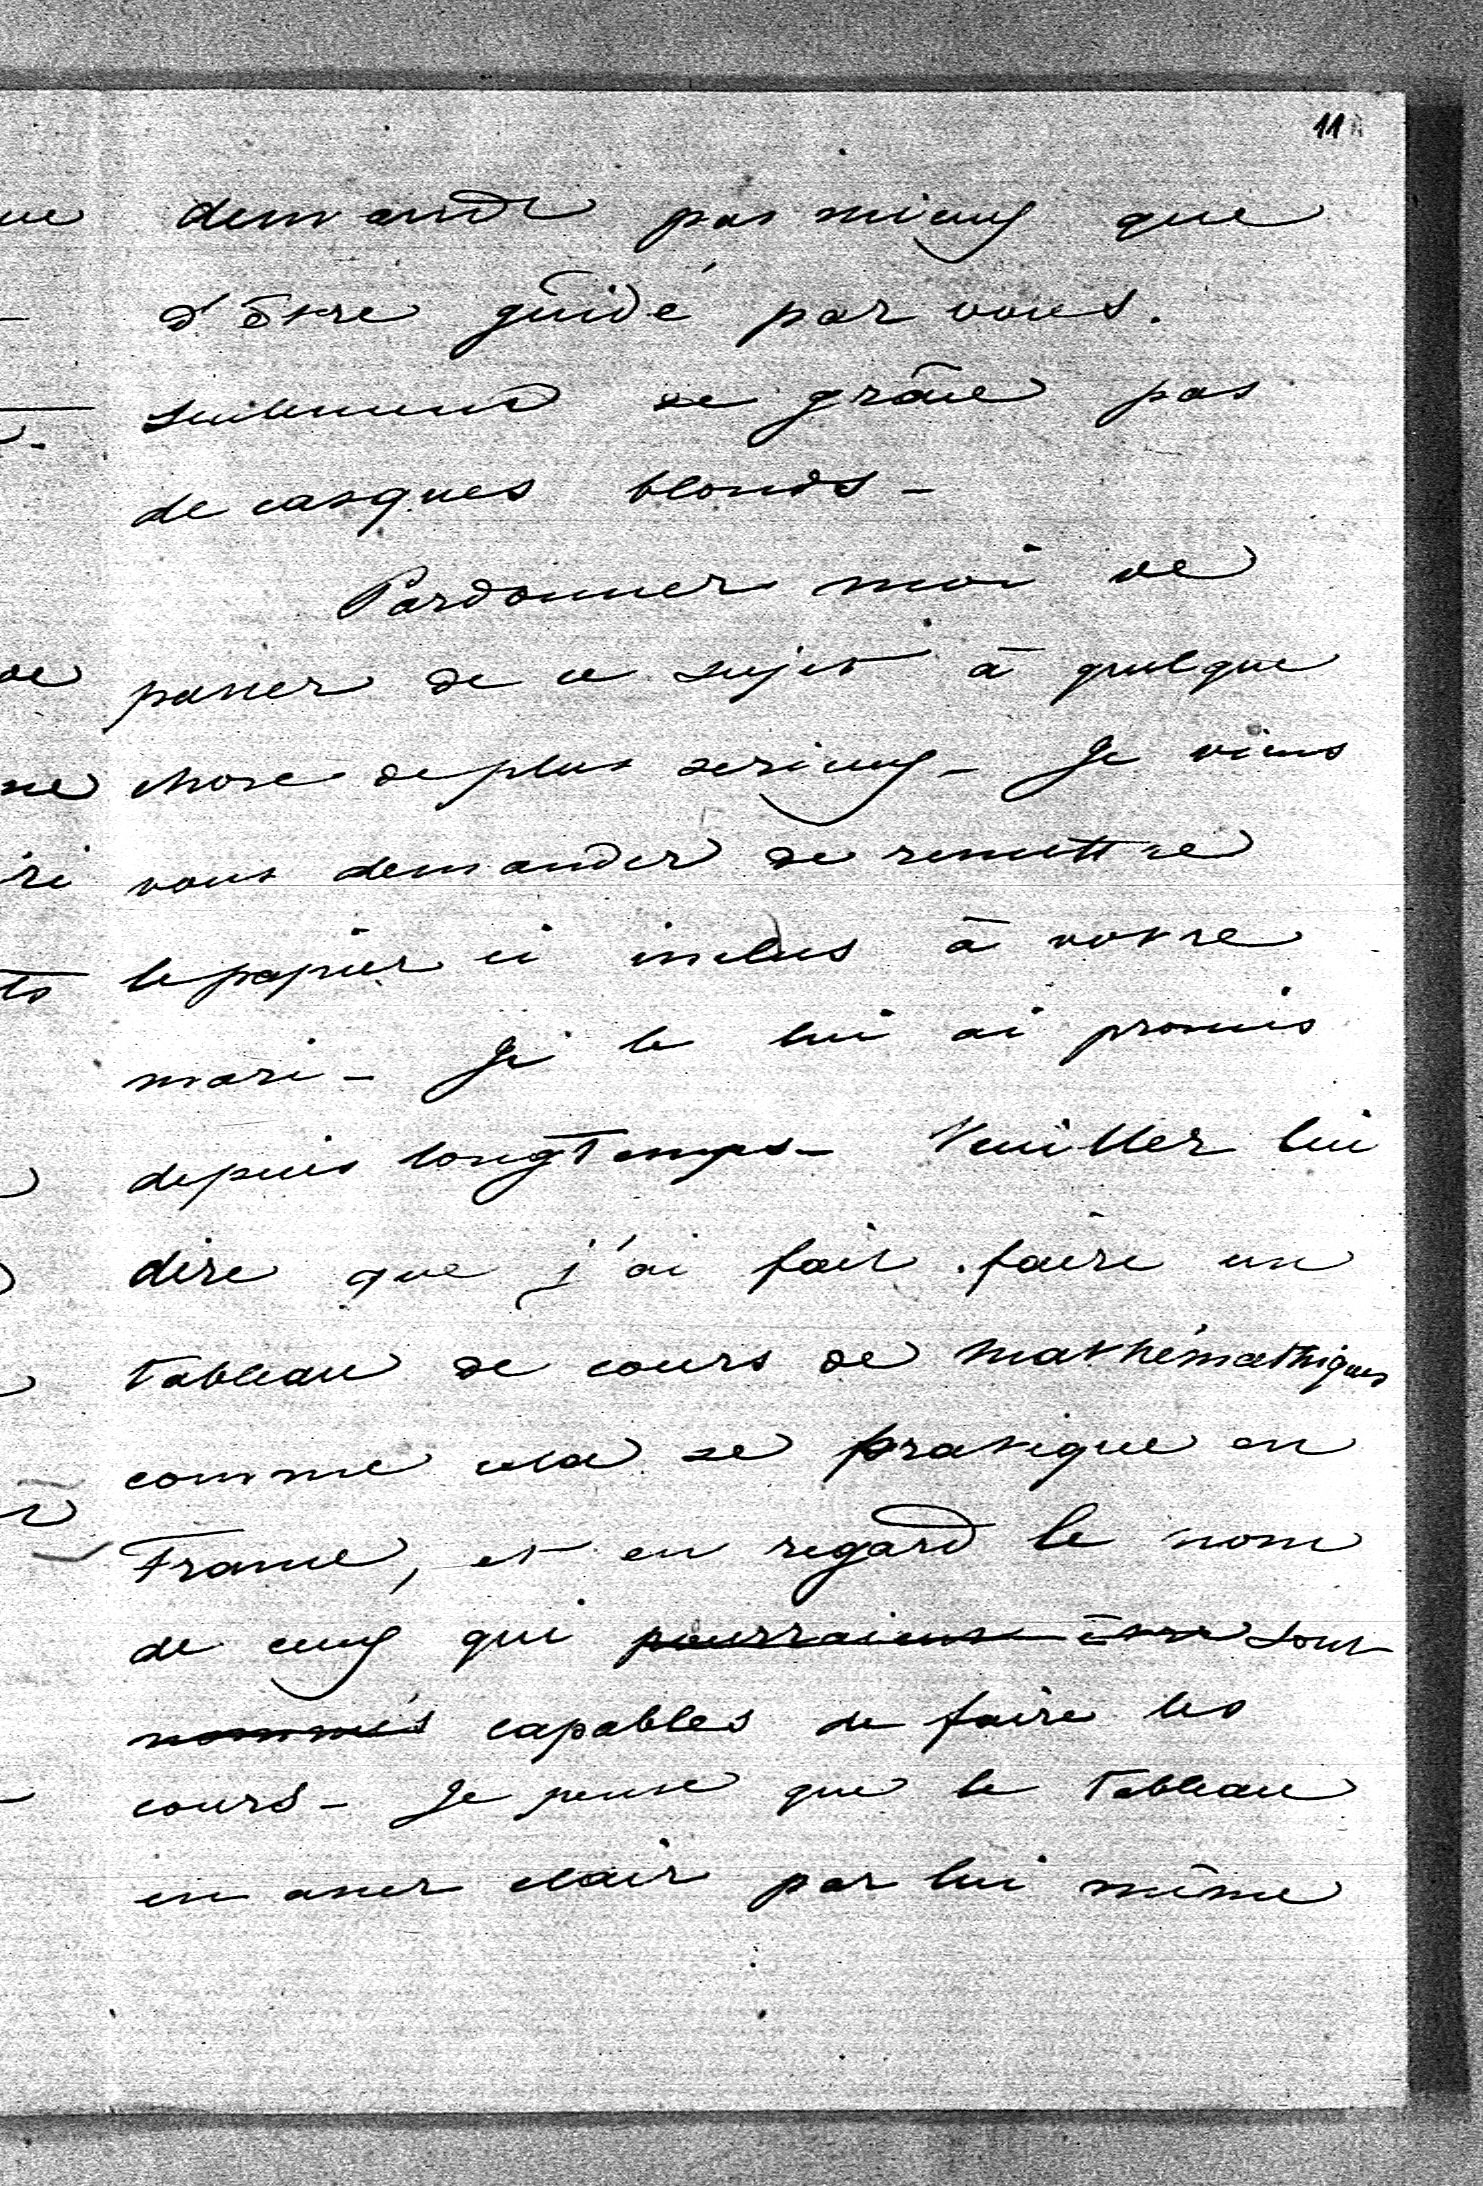 11
demande pas mieux que
d'être guidé par vous.
seulement de grâce pas
de casques blonds -
Pardonner moi de
passer de ce sujet à quelque
chose de plus serieux - Je viens
vous demander de remettre
le papier ci inclus à votre
mari - Je le lui ai promis
depuis longtemps - Veuiller lui
dire que j'ai fait faire un
tableau de cours de mathémathiques
comme cela se pratique en
France, et en regard le nom
de ceux qui pourraient être sont
nommés capables de faire les
cours - Je pense que le tableau
en asser clair par lui même